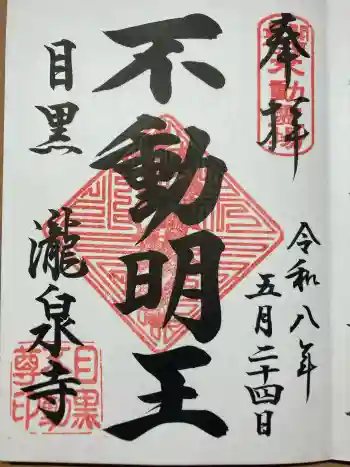 奉拝
令和八年
五月二十四日
不動明王
目黒
瀧泉寺
目黒
不動
尊印